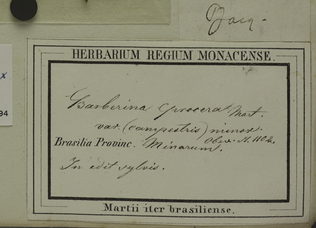 Jacq.
x
94
HERBARIUM REGIUM MONACENSE.
Barberina procera Mart.
var. (campestris) minor.
Obs. n. 1104.
Brasilia Provinc. Minarum.
In edit sylvis.
Martii iter brasiliense.